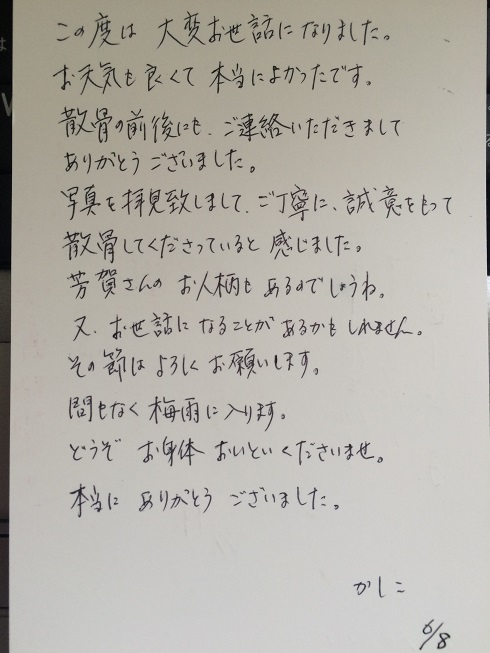 この度は 大変お世話になりました。
お天気も良くて 本当によかったです。
散骨の前後にも、ご連絡いただきまして
ありがとうございました。
写真を拝見致しまして、ご丁寧に、誠意をもって
散骨してくださっていると 感じました。
芳賀さんの お人柄も あるのでしょうね。
又、お世話になることがあるかもしれません。
その節は よろしく お願いします。
間もなく 梅雨に入ります。
どうぞ お身体 おいといくださいませ。
本当に ありがとう ございました。
かしこ
6/8